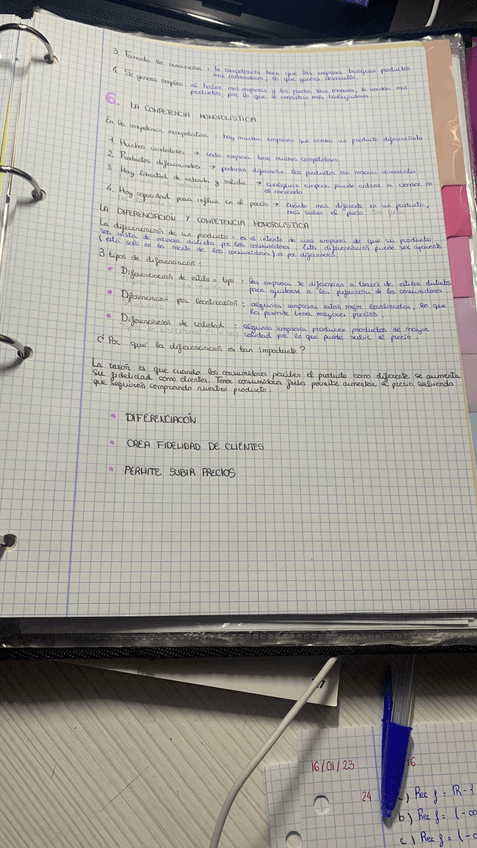 3. Fomenta la innovación : la competencia hace que las empresas busquen productos
más innovadores, lo que genera desarrollo
4. Se genera empleo : al haber más empresas y los precios sean menores, se venden más
productos, por lo que se necesitan más trabajadores.
6. LA COMPETENCIA MONOPOLÍSTICA
En la competencia monopolística : hay muchas empresas que venden un producto diferenciado
1. Muchos vendedores → cada empresa tiene muchos competidores.
2. Productos diferenciados → podemos diferenciar los productos con marcas comerciales
3. Hay libertad de entrada y salida → cualquier empresa puede entrar a vender en
el mercado
4. Hay capacidad para influir en el precio → cuanto más diferente es un producto,
más suben el precio.
LA DIFERENCIACIÓN Y COMPETENCIA MONOPOLÍSTICA
La diferenciación de un producto : es el intento de una empresa de que su producto
sea visto de manera distinta por los consumidores. Esta diferenciación puede ser aparente
(está solo en la mente de los consumidores) o por diferencias
3 tipos de diferenciación :
• Diferenciación de estilo o tipo : las empresas se diferencian a través de estilos distintos
para ajustarse a las preferencias de los consumidores.
• Diferenciación por localización : algunas empresas están mejor localizadas, lo que
les permite tener mayores precios.
• Diferenciación de calidad : algunas empresas producen productos de mayor
calidad por lo que puede subir el precio.
¿Por qué la diferenciación es tan importante?
La razón es que cuando los consumidores perciben el producto como diferente se aumenta
su fidelidad como clientes. Tener consumidores fieles permite aumentar el precio sabiendo
que seguirán comprando nuestro producto.
• DIFERENCIACIÓN
• CREA FIDELIDAD DE CLIENTES
• PERMITE SUBIR PRECIOS
16/01/23
16
24
a) Rec f = R - {
b) Rec f = (-∞
c) Rec f = (-∞